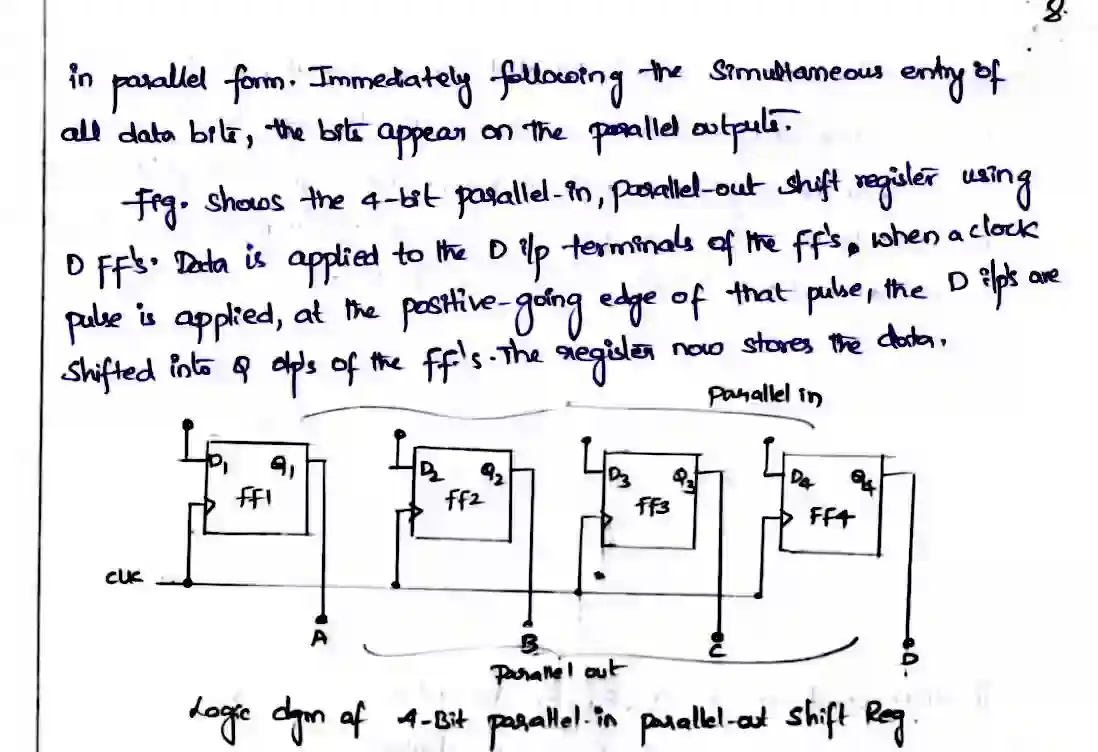 8.
in parallel form. Immediately following the Simultaneous entry of
all data bits, the bits appear on the parallel outputs.
Fig. shows the 4-bit parallel-in, parallel-out shift register using
D FF's. Data is applied to the D i/p terminals of the FF's, when a clock
pulse is applied, at the positive-going edge of that pulse, the D i/p's are
Shifted into Q o/p's of the FF's. The register now stores the data.
Parallel in
D1 Q1 D2 Q2 D3 Q3 D4 Q4
FF1 FF2 FF3 FF4
CLK
A B C D
Parallel out
Logic dgm of 4-Bit parallel-in parallel-out Shift Reg.